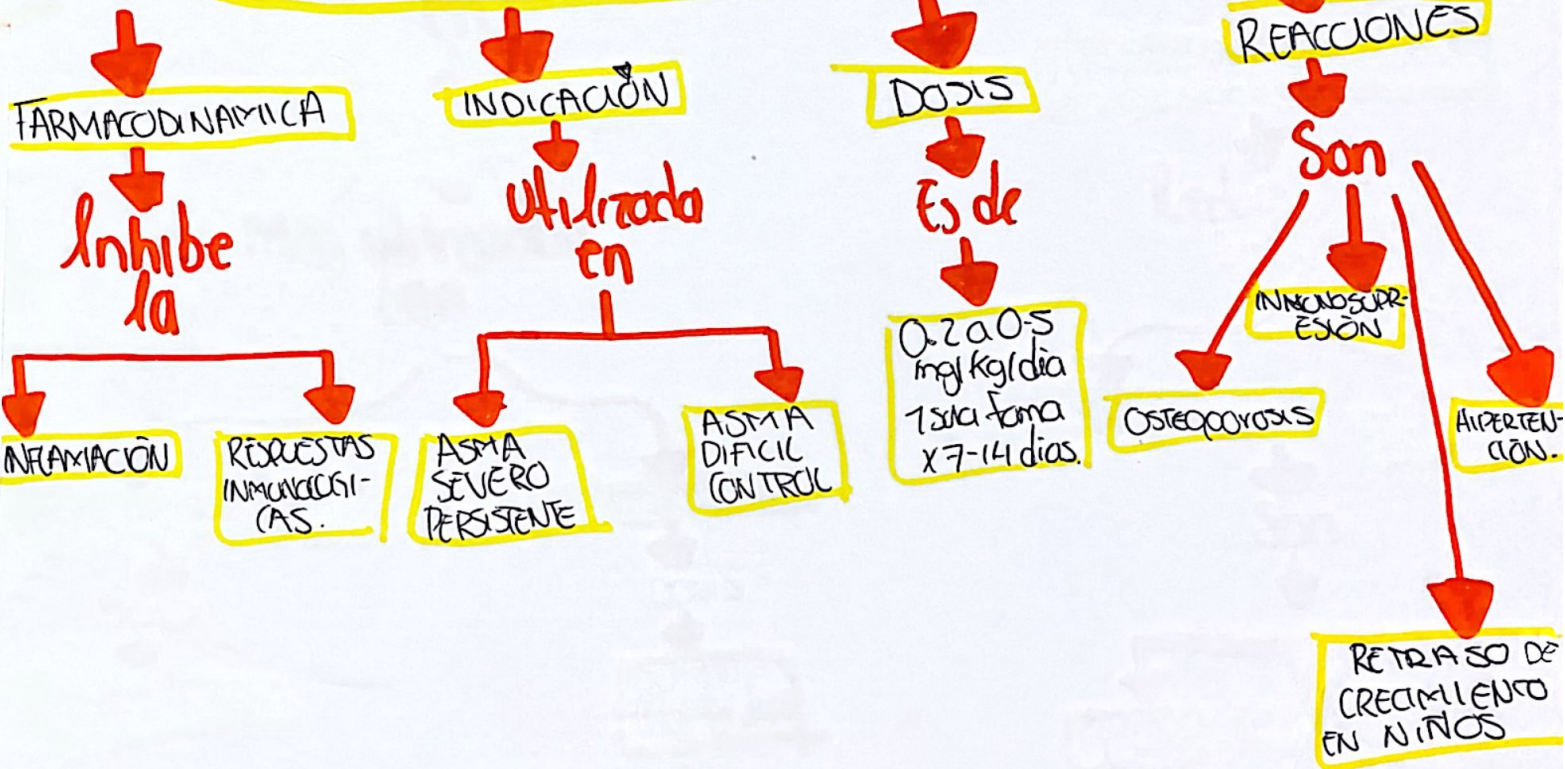 FARMACODINAMICA
Inhibe
la
INFLAMACIÓN
RESPUESTAS
INMUNOLOGI-
CAS.
INDICACIÓN
utilizada
en
ASMA
SEVERO
PERSISTENTE
ASMA
DIFICIL
CONTROL
DOSIS
Es de
0.2 a 0.5
mg/Kg/dia
1 sola toma
x 7-14 dias.
REACCIONES
Son
OSTEOPOROSIS
INMUNOSUPR-
ESIÓN
RETRASO DE
CRECIMIENTO
EN NIÑOS
HIPERTEN-
CIÓN.